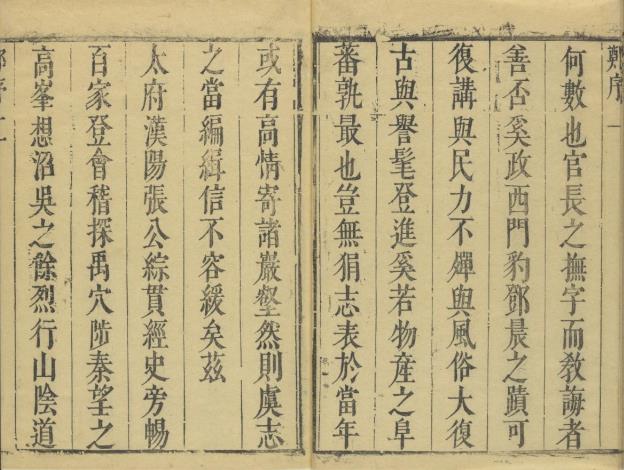 鄭序 一
何數也官長之撫字而敎誨者
善否奚政西門豹鄧晨之蹟可
復講與民力不殫與風俗大復
古與譽髦登進奚若物產之阜
蕃孰最也豈無狷志表於當年
或有高情寄諸巖壑然則虞志
之當編緝信不容緩矣茲
太府漢陽張公綜貫經史旁暢
百家登會稽探禹穴陟秦望之
高峯想沼吳之餘烈行山陰道